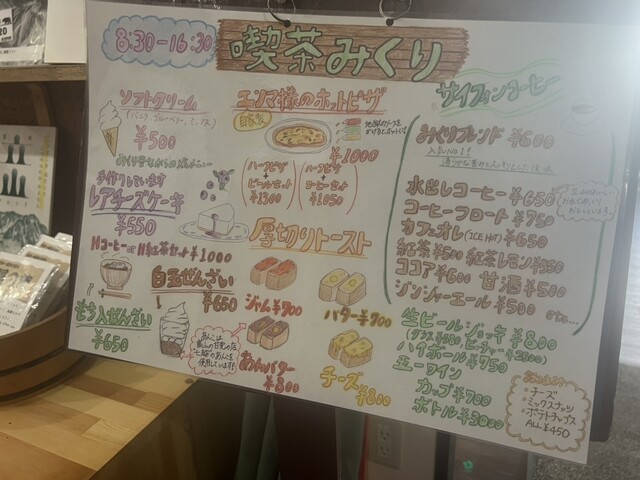 8:30-16:30
喫茶みくり
ソフトクリーム
(バニラ、ブルーベリー、ミックス)
¥500
手作りしています
レアチーズケーキ
¥550
Hコーヒー or H紅茶セット ¥1000
白玉ぜんざい
¥650
もち入ぜんざい
¥650
エンマ様のホットピザ
自家製
¥1000
ハーフピザ
+
ビールセット
¥1300
ハーフピザ
+
コーヒーセット
¥1050
厚切りトースト
ジャム¥700
バター¥700
あんバター
¥800
チーズ¥800
サイフォンコーヒー
みくりブレンド ¥600
人気No.1!
水出しコーヒー¥650
コーヒーフロート¥750
カフェオレ(ICE HOT)¥650
紅茶¥500 紅茶レモン¥550
ココア¥600 甘酒¥500
ジンジャーエール¥500
生ビールジョッキ¥800
ハイボール¥750
玉ーワイン
カップ¥700
ボトル¥3000
・チーズ
・ミックスナッツ
・ポテトチップス
ALL¥450